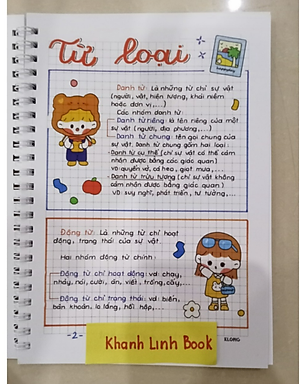 Từ loại
Danh từ: Là những từ chỉ sự vật
(người, vật, hiện tượng, khái niệm
hoặc đơn vị,...)
Các nhóm danh từ:
Danh từ riêng: là tên riêng của một
sự vật (người, địa phương,...)
Danh từ chung: tên gọi chung của
sự vật. Danh từ chung gồm hai loại:
Danh từ cụ thể (chỉ sự vật có thể cảm
nhận được bằng các giác quan)
VD: quyển vở, cá heo, giọt mưa,...
Danh từ trừu tượng (chỉ sự vật không
cảm nhận được bằng giác quan)
VD: suy nghĩ, phát triển, tư tưởng,...
Động từ: Là những từ chỉ hoạt
động, trạng thái của sự vật.
Hai nhóm động từ chính:
Động từ chỉ hoạt động: vd chạy,
nhảy, nói, cười, ăn, viết, trồng, cấy,...
Động từ chỉ trạng thái: vd: biến,
băn khoăn, lo lắng, hồi hộp,...
-2-
Khanh Linh Book
KLONG